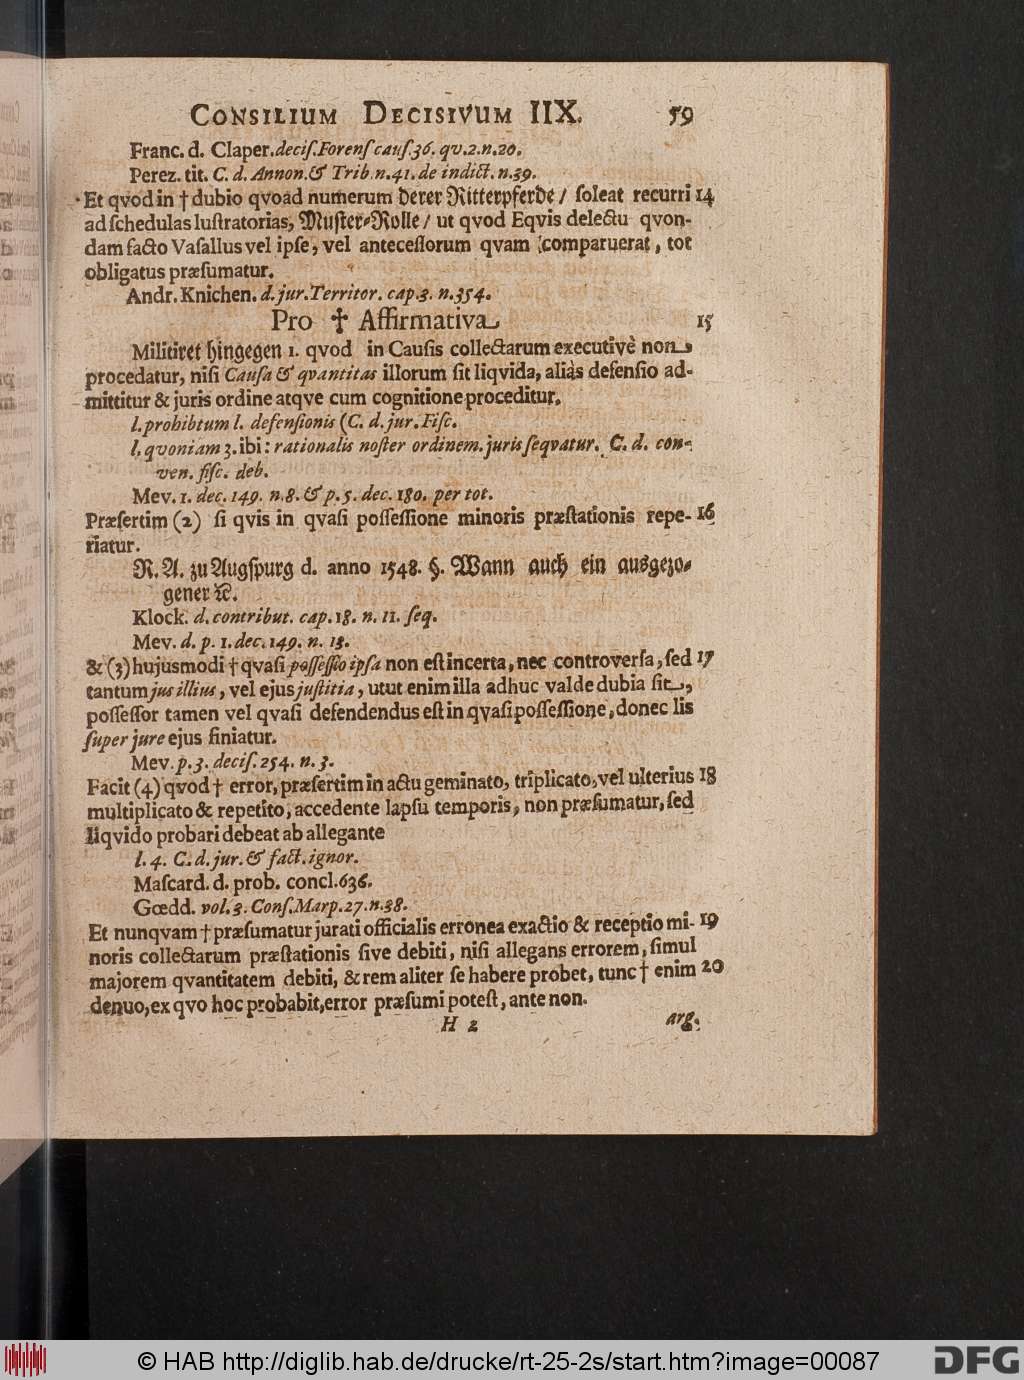 CONSILIUM DECISIVUM IIX. 59
Franc. d. Claper. deciſ. Forenſ cauſ. 36. qv. 2. n. 20.
Perez. tit. C. d. Annon. & Trib. n. 41. de indict. n. 39.
Et qvod in † dubio qvoad numerum derer Ritterpferde / ſoleat recurri 14
ad ſchedulas luſtratorias, Muſter-Rolle / ut qvod Eqvis delectu qvon-
dam facto Vaſallus vel ipſe, vel anteceſſorum qvam comparuerat, tot
obligatus præſumatur.
Andr. Knichen. d. jur. Territor. cap. 3. n. 354.
Pro † Affirmativa 15
Militiret hingegen 1. qvod in Cauſis collectarum executivè non
procedatur, niſi Cauſa & qvantitas illorum ſit liqvida, aliàs defenſio ad-
mittitur & juris ordine atqve cum cognitione proceditur.
l. prohibtum l. defenſionis (C. d. jur. Fiſc.
l. qvoniam 3. ibi: rationalis noſter ordinem. juris ſeqvatur. C. d. con-
ven. fiſc. deb.
Mev. 1. dec. 149. n. 8. & p. 5. dec. 180. per tot.
Præſertim (2) ſi qvis in qvaſi poſſeſſione minoris præſtationis repe- 16
riatur.
R. A. zu Augſpurg d. anno 1548. §. Wann auch ein ausgezo-
gener ꝛc.
Klock. d. contribut. cap. 18. n. 11. ſeq.
Mev. d. p. 1. dec. 149. n. 13.
& (3) hujusmodi † qvaſi poſſeſſio ipſa non eſt incerta, nec controverſa, ſed 17
tantum jus illius, vel ejus juſtitia, utut enim illa adhuc valde dubia ſit,
poſſeſſor tamen vel qvaſi defendendus eſt in qvaſi poſſeſſione, donec lis
ſuper jure ejus finiatur.
Mev. p. 3. deciſ. 254. n. 3.
Facit (4) qvod † error, præſertim in actu geminato, triplicato, vel ulterius 18
multiplicato & repetito, accedente lapſu temporis, non præſumatur, ſed
liqvido probari debeat ab allegante
l. 4. C. d. jur. & fact. ignor.
Maſcard. d. prob. concl. 636.
Gœdd. vol. 3. Conſ. Marp. 27. n. 38.
Et nunqvam † præſumatur jurati officialis erronea exactio & receptio mi- 19
noris collectarum præſtationis ſive debiti, niſi allegans errorem, ſimul
majorem qvantitatem debiti, & rem aliter ſe habere probet, tunc † enim 20
denuo, ex qvo hoc probabit, error præſumi poteſt, ante non.
H 2 arg.
© HAB http://diglib.hab.de/drucke/rt-25-2s/start.htm?image=00087 DFG